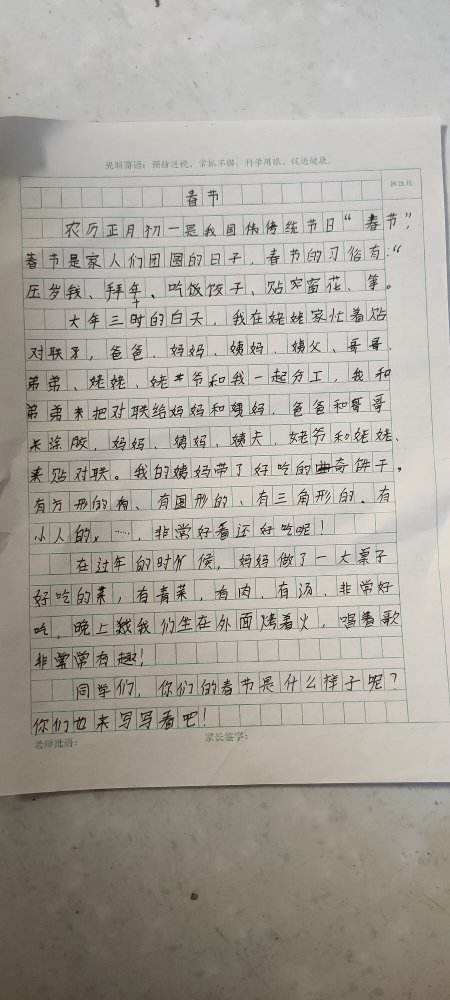 光明寄语：预防近视、常抓不懈、科学用眼、促进健康。
批注栏
春节
农历正月初一是我国伟传统节日“春节”，
春节是家人们团圆的日子，春节的习俗有：“
压岁钱、拜年、吃饭饺子、贴窗花、等。
大年三十时的白天，我在姥姥家忙着贴
对联了，爸爸、妈妈、姨妈、姨父、哥哥、
弟弟、姥姥、姥爷和我一起分工，我和
弟弟来把对联给妈妈和姨妈，爸爸和哥哥
来涂胶，妈妈、姨妈、姨夫、姥爷和姥姥、
来贴对联。我的姨妈带了好吃的曲奇饼干，
有方形的、有圆形的、有三角形的、有
小人的，……，非常好看还好吃呢！
在过年的时候，妈妈做了一大桌子
好吃的菜，有青菜，有肉、有汤、非常好
吃，晚上我们坐在外面烤着火，唱着歌
非常有趣！
同学们，你们的春节是什么样子呢？
你们也来写写看吧！
老师批语： 家长签字：